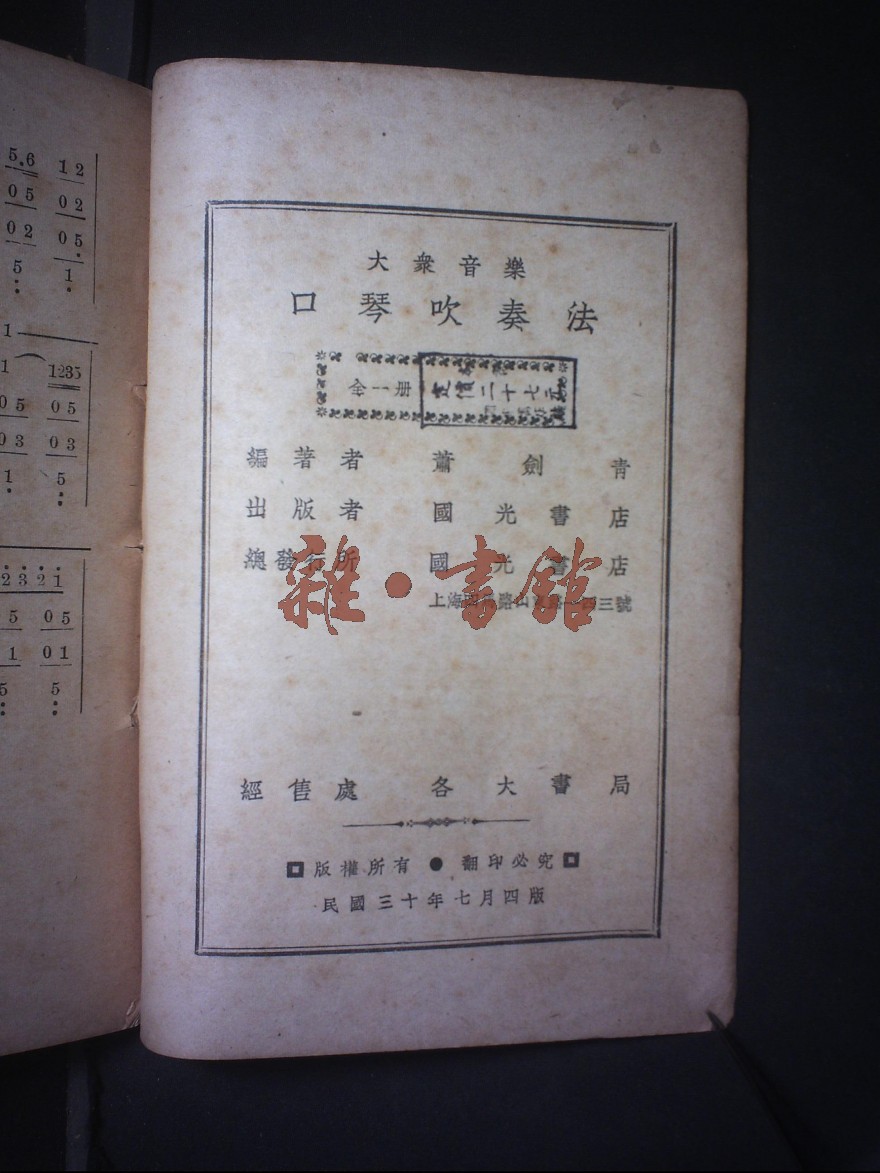 大衆音樂
口琴吹奏法
全一册
定價二十七元
編著者 蕭劍青
出版者 國光書店
總發行所 國光書店
上海 路山 路 四三號
雜·書館
經售處 各大書局
版權所有 ● 翻印必究
民國三十年七月四版
5.6 12
05 02
02 05
5 1
1
1 1235
05 05
03 03
1 5
2321
5 05
1 01
5 5